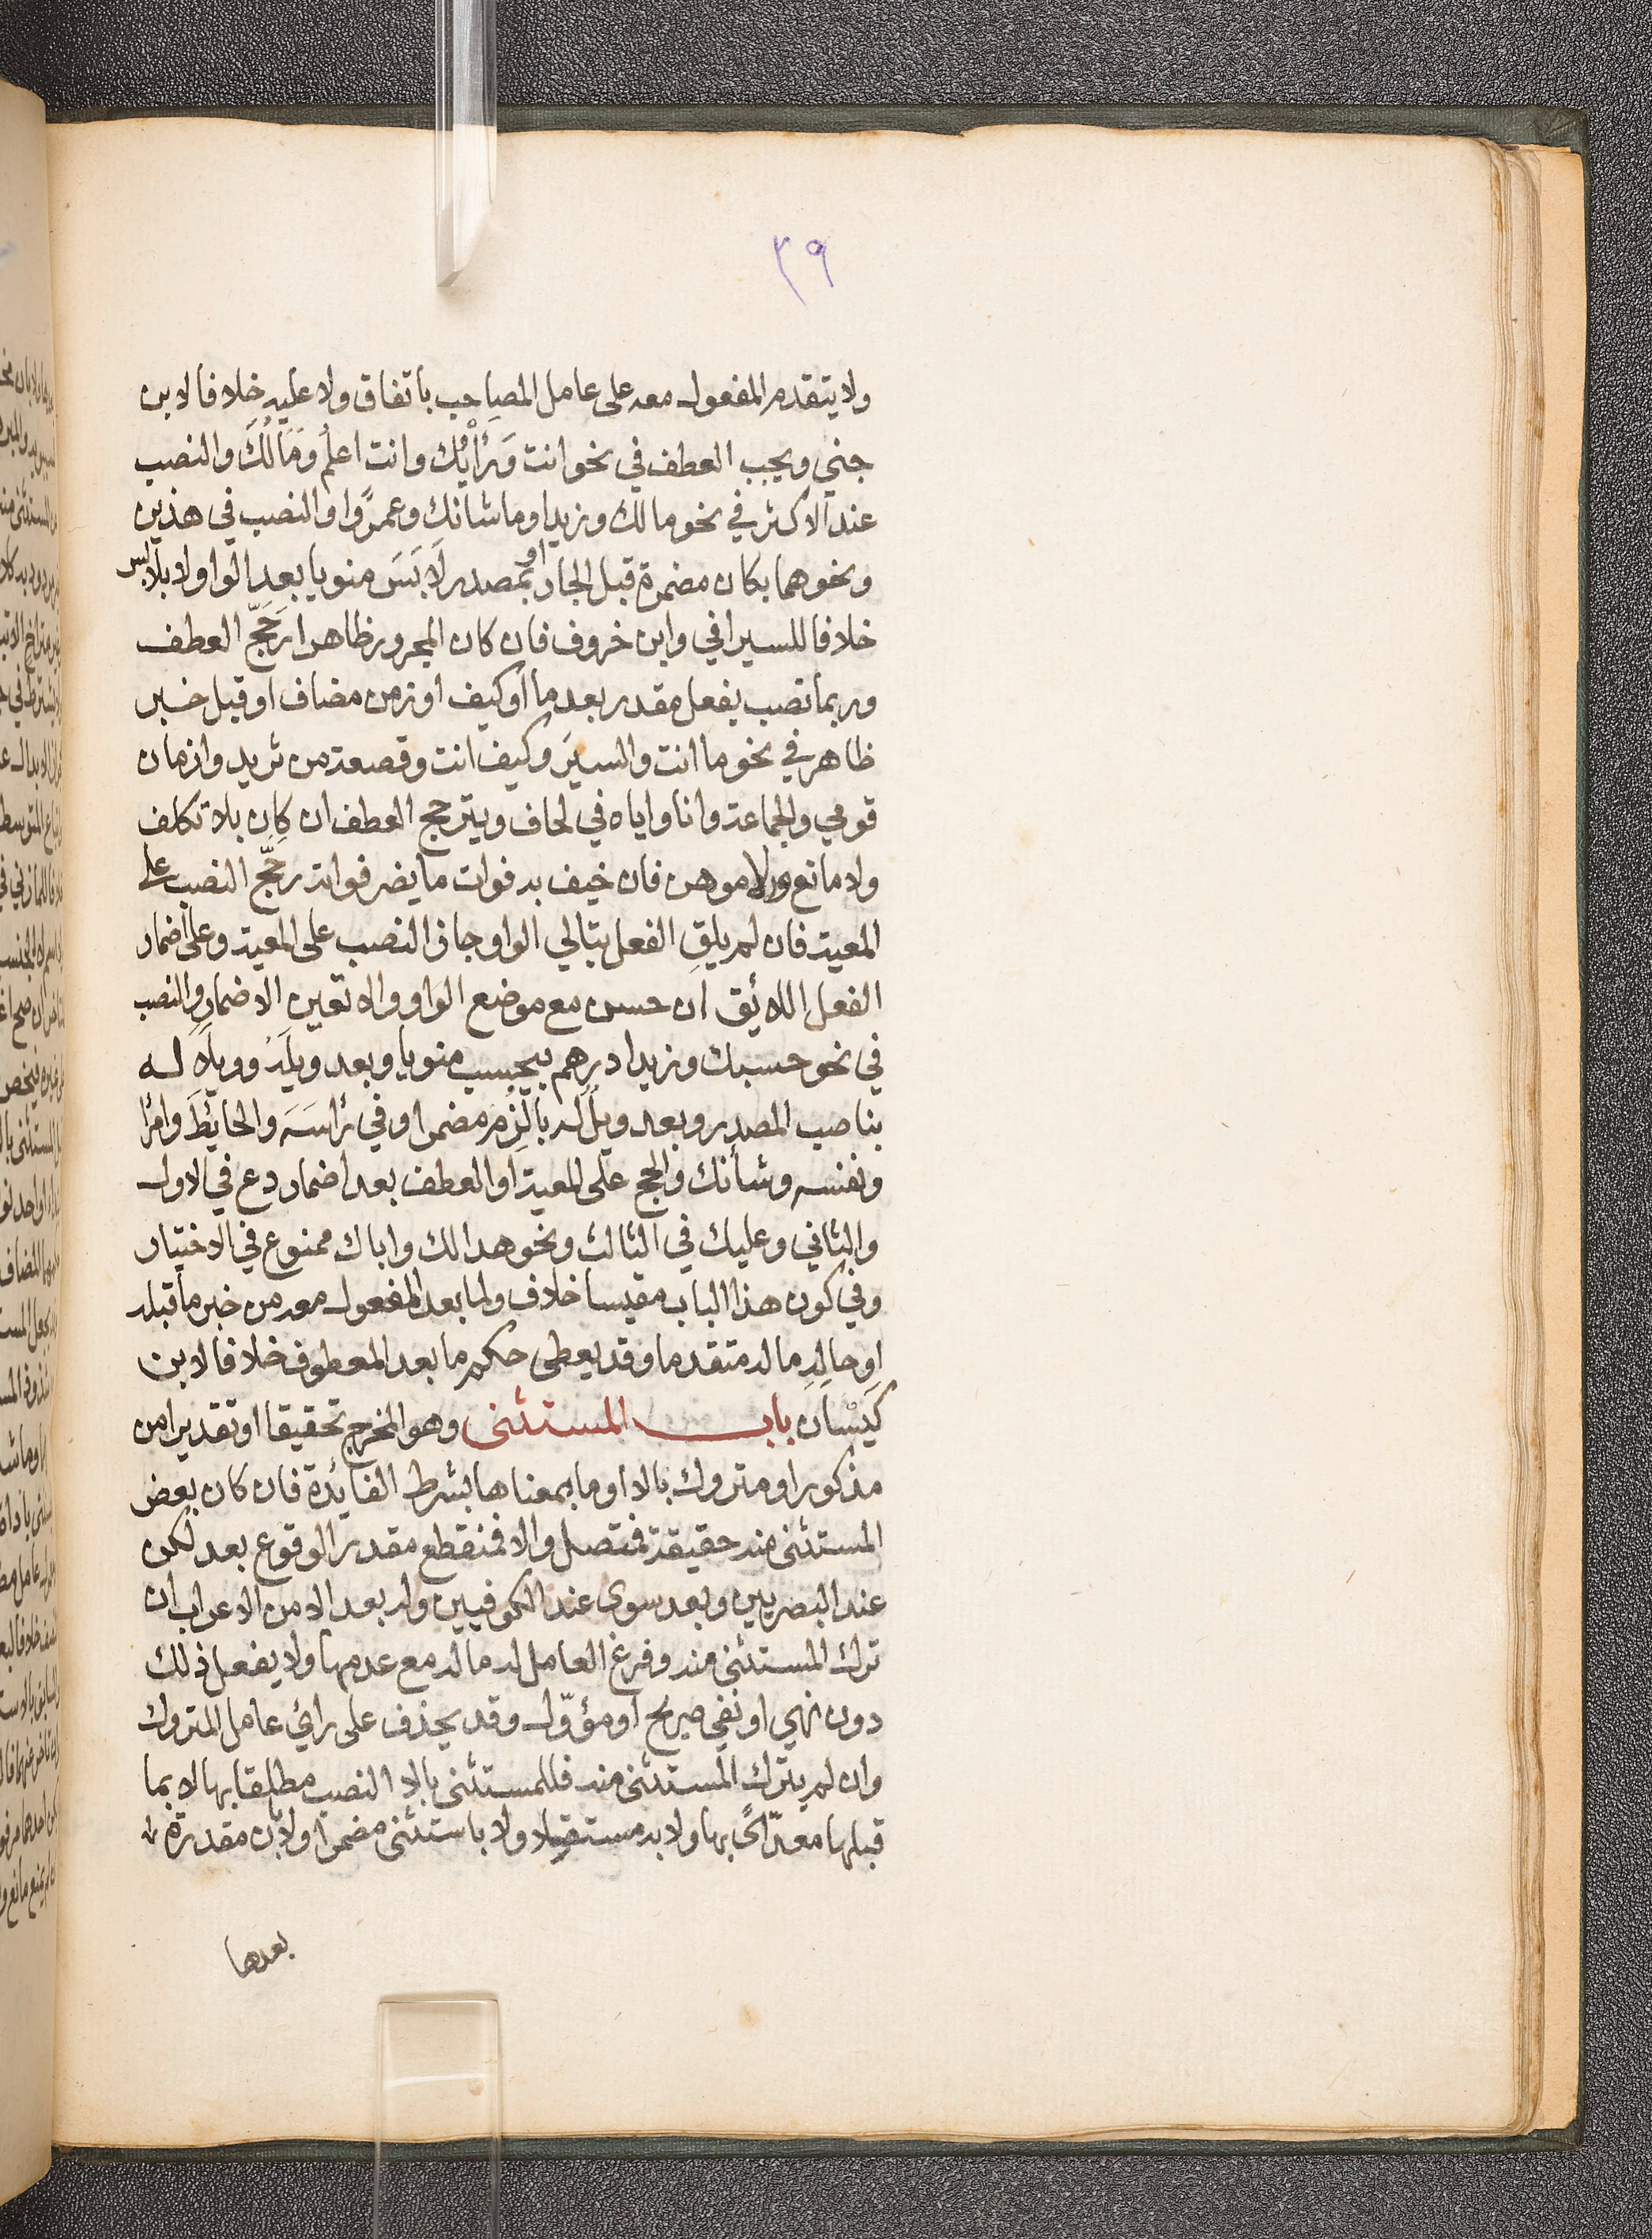 ٣٩
ولا يتقدم المفعول معه على عامل المصاحب باتفاق ولا عليه خلافا لابن
جني ويجب العطف في نحو انت وَرَأْيُك وانت اعلمُ ومَالُكَ والنصب
عند الاكثر في نحو مالك وزيدا وما شانك وعمرًوا والنصب في هذين
ونحوهما بكان مضمرة قبل الجار او بمصدر لَابَسَ منويا بعد الواو لا بلابس
خلافا للسيرافي وابن خروف فان كان المجرور ظاهرا رَجَحَ العطف
وربما نصب بفعل مقدر بعد ما او كيف او زمن مضاف او قبل خبر
ظاهر في نحو ما انت والسيرَ وكيف انت وقصعة من ثريد وازمان
قومي والجماعة وانا واياه في لحاف ويترجح العطف ان كان بلا تكلف
ولا مانع ولا موهن فان خيف به فوات ما يضر فواته رجح النصب على
المعية فان لم يلقِ الفعل بتالي الواو جاز النصب على المعية وعلى اضمار
الفعل اللائق ان حسن مع موضع الواو والا تعين الاضمار والنصب
في نحو حسبك وزيدا درهم بيحسب منويا وبعد ويلَهُ وويلًا له
بناصب المصدر وبعد ويلٌ له بالزم مضمرا وفي رأسَهَ والحايطَ وامرًا
ونفسه وشأنك والحج على المعية او العطف بعد اضمار دع في الاول
والثاني وعليك في الثالث ونحو هذا لك واباك ممنوع في الاختيار
وفي كون هذا الباب مقيسا خلاف ولما بعد المفعول معه من خبر ما قبله
او حالهِ ما له متقدما وقد يعطى حكم ما بعد المعطوف خلافا لابن
كَيْسَان باب المستثنى وهو المخرج تحقيقا او تقديرا من
مذكور او متروك بالا او ما بمعناها بشرط الفايدة فان كان بعض
المستثنى منه حقيقة فمتصل والا فمنقطع مقدر الوقوع بعد لكن
عند البصريين وبعد سوى عند الكوفيين وله بعد الا من الاعراب ان
ترك المستثنى منه وفرغ العامل له ما له مع عدمها ولا يفعل ذلك
دون نهي او نفي صريح او مؤوّل وقد يحذف على راي عامل المتروك
وان لم يترك المستثنى منه فللمستثنى بالا النصب مطلقا بها لا بما
قبلها معدّىً بها ولا به مستقلا ولا باستثنى مضمرا ولا بان مقدرة
بعدها